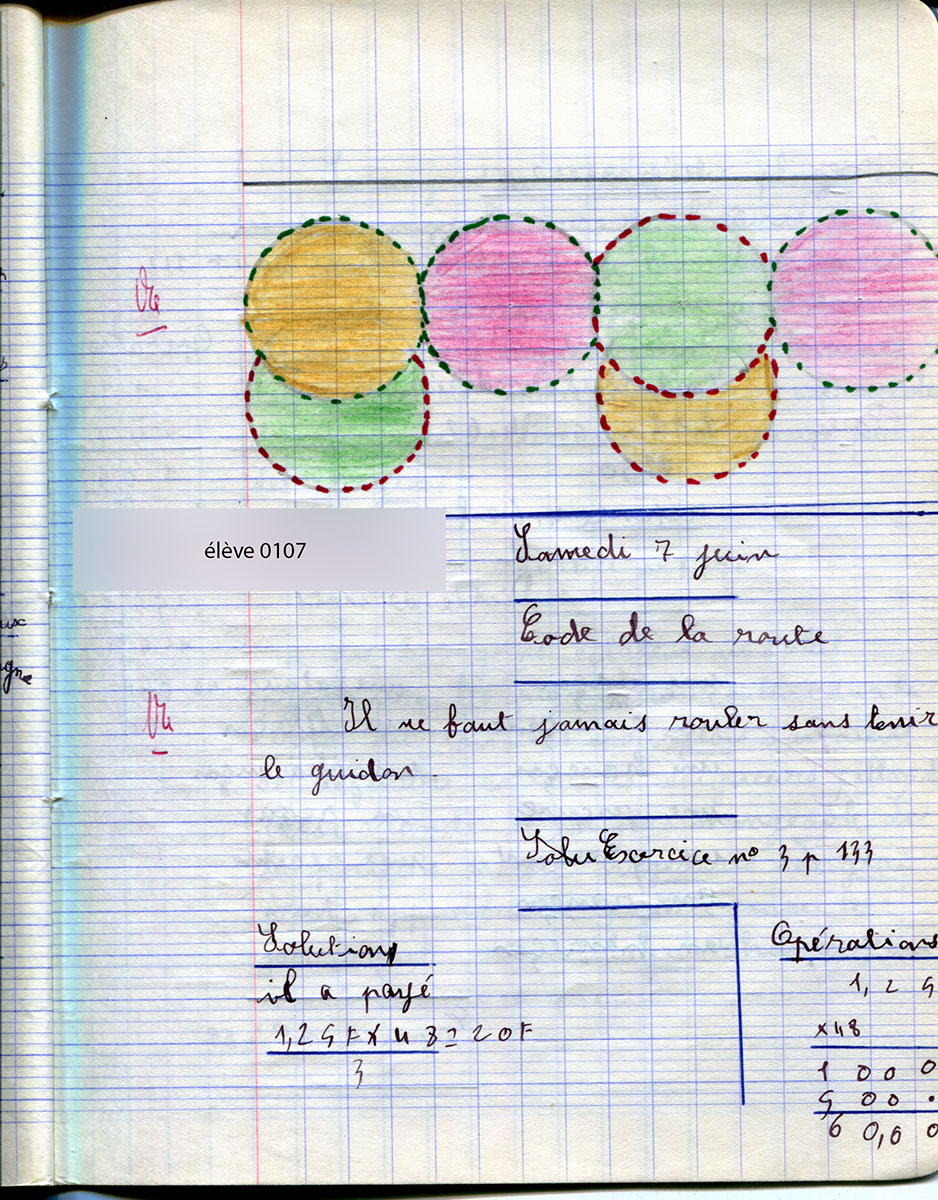 Vu
élève 0107
Samedi 7 juin
Code de la route
Vu
Il ne faut jamais rouler sans tenir
le guidon.
Exercice n° 3 p 133
Solution
Opérations
il a payé
1,25 F x 48 = 20F
3
1,25
x48
1000
500.
60,00